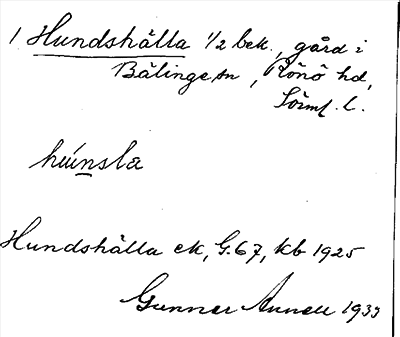 1 Hundshälla 1/2 bek., gård i
Bälinge sn, Rönö hd,
Sörml. l.
húnsla
Hundshälla ek, G.67, kb 1925
Gunnar Annell 1933